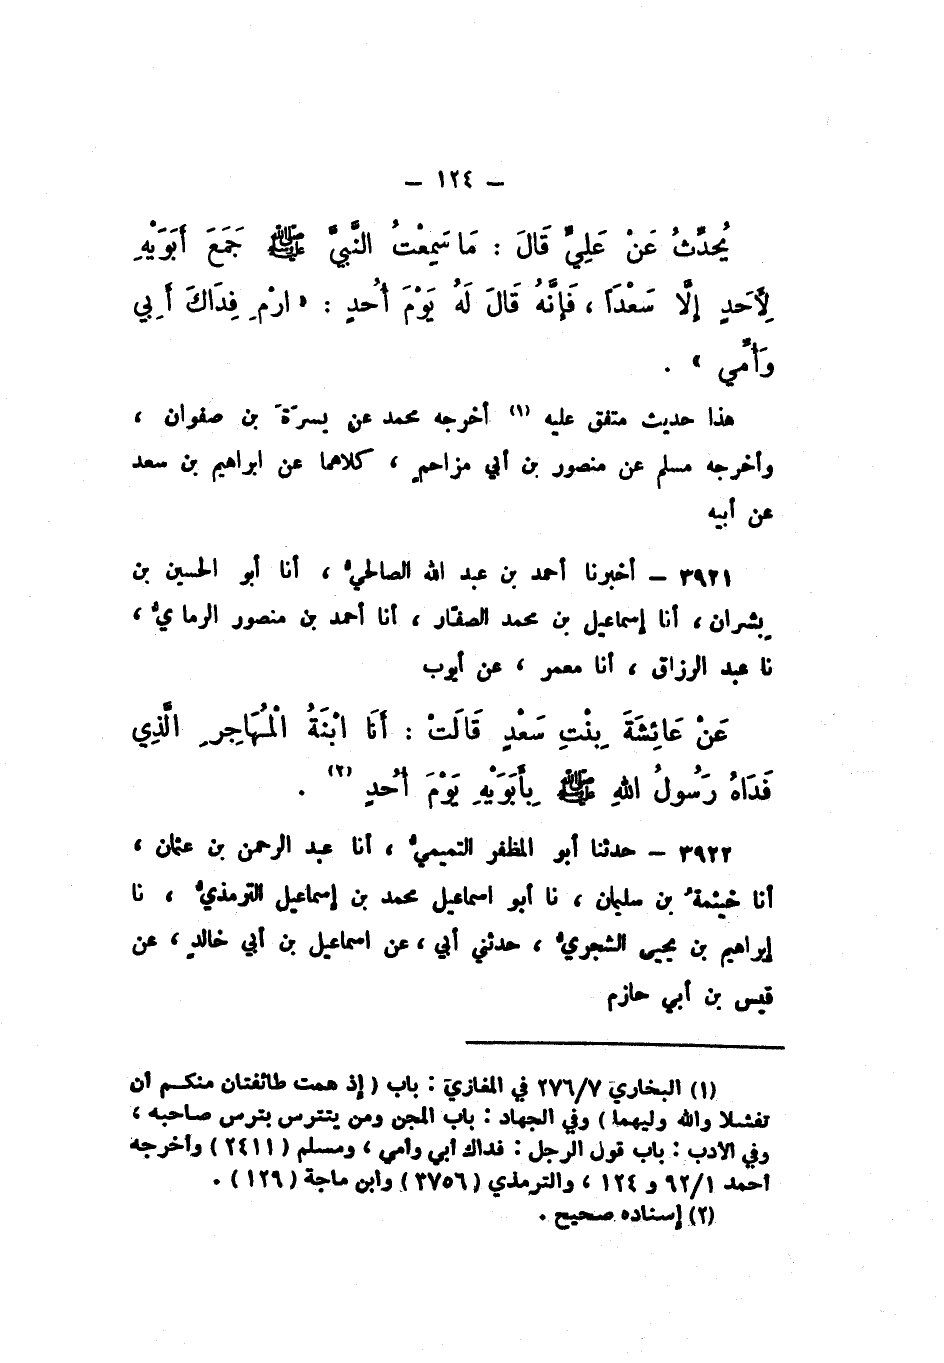 – ١٢٤ –
يُحَدِّثُ عَنْ عَلِيٍّ قَالَ : مَا سَمِعْتُ النَّبِيَّ ﷺ جَمَعَ أَبَوَيْهِ
لِأَحَدٍ إِلَّا سَعْدَاً ، فَإِنَّهُ قَالَ لَهُ يَوْمَ أُحُدٍ : « ارْمِ فِدَاكَ أَبِي
وَأُمِّي » .
هذا حديث متفق عليه (١) أخرجه محمد عن يسرَةَ بن صفوان ،
وأخرجه مسلم عن منصور بن أبي مزاحمٍ ، كلاهما عن ابراهيم بن سعد
عن أبيه
٣٩٢١ – أخبرنا أحمد بن عبد الله الصالحيُّ ، أنا أبو الحسين بن
بِشران ، أنا إسماعيل بن محمد الصفّار ، أنا أحمد بن منصور الرماديُّ ،
نا عبد الرزاق ، أنا معمر ، عن أيوب
عَنْ عَائِشَةَ بِنْتِ سَعْدٍ قَالَتْ : أَنَا ابْنَةُ الْمُهَاجِرِ الَّذِي
فَدَاهُ رَسُولُ اللهِ ﷺ بِأَبَوَيْهِ يَوْمَ أُحُدٍ (٢) .
٣٩٢٢ – حدثنا أبو المظفر التميميُّ ، أنا عبد الرحمن بن عثمان ،
أنا خيثمةُ بن سليمان ، نا أبو اسماعيل محمد بن إسماعيل الترمذيُّ ، نا
إبراهيم بن يحيى الشجريُّ ، حدثني أبي ، عن اسماعيل بن أبي خالدٍ ، عن
قيس بن أبي حازم
(١) البخاري ٢٧٦/٧ في المغازي : باب ( إذ همت طائفتان منكم أن
تفشلا والله وليهما ) وفي الجهاد : باب المجن ومن يتترس بترس صاحبه ،
وفي الأدب : باب قول الرجل : فداك أبي وأمي ، ومسلم ( ٢٤١١ ) وأخرجه
أحمد ٩٢/١ و ١٢٤ ، والترمذي ( ٣٧٥٦ ) وابن ماجة ( ١٢٩ ) .
(٢) إسناده صحيح .